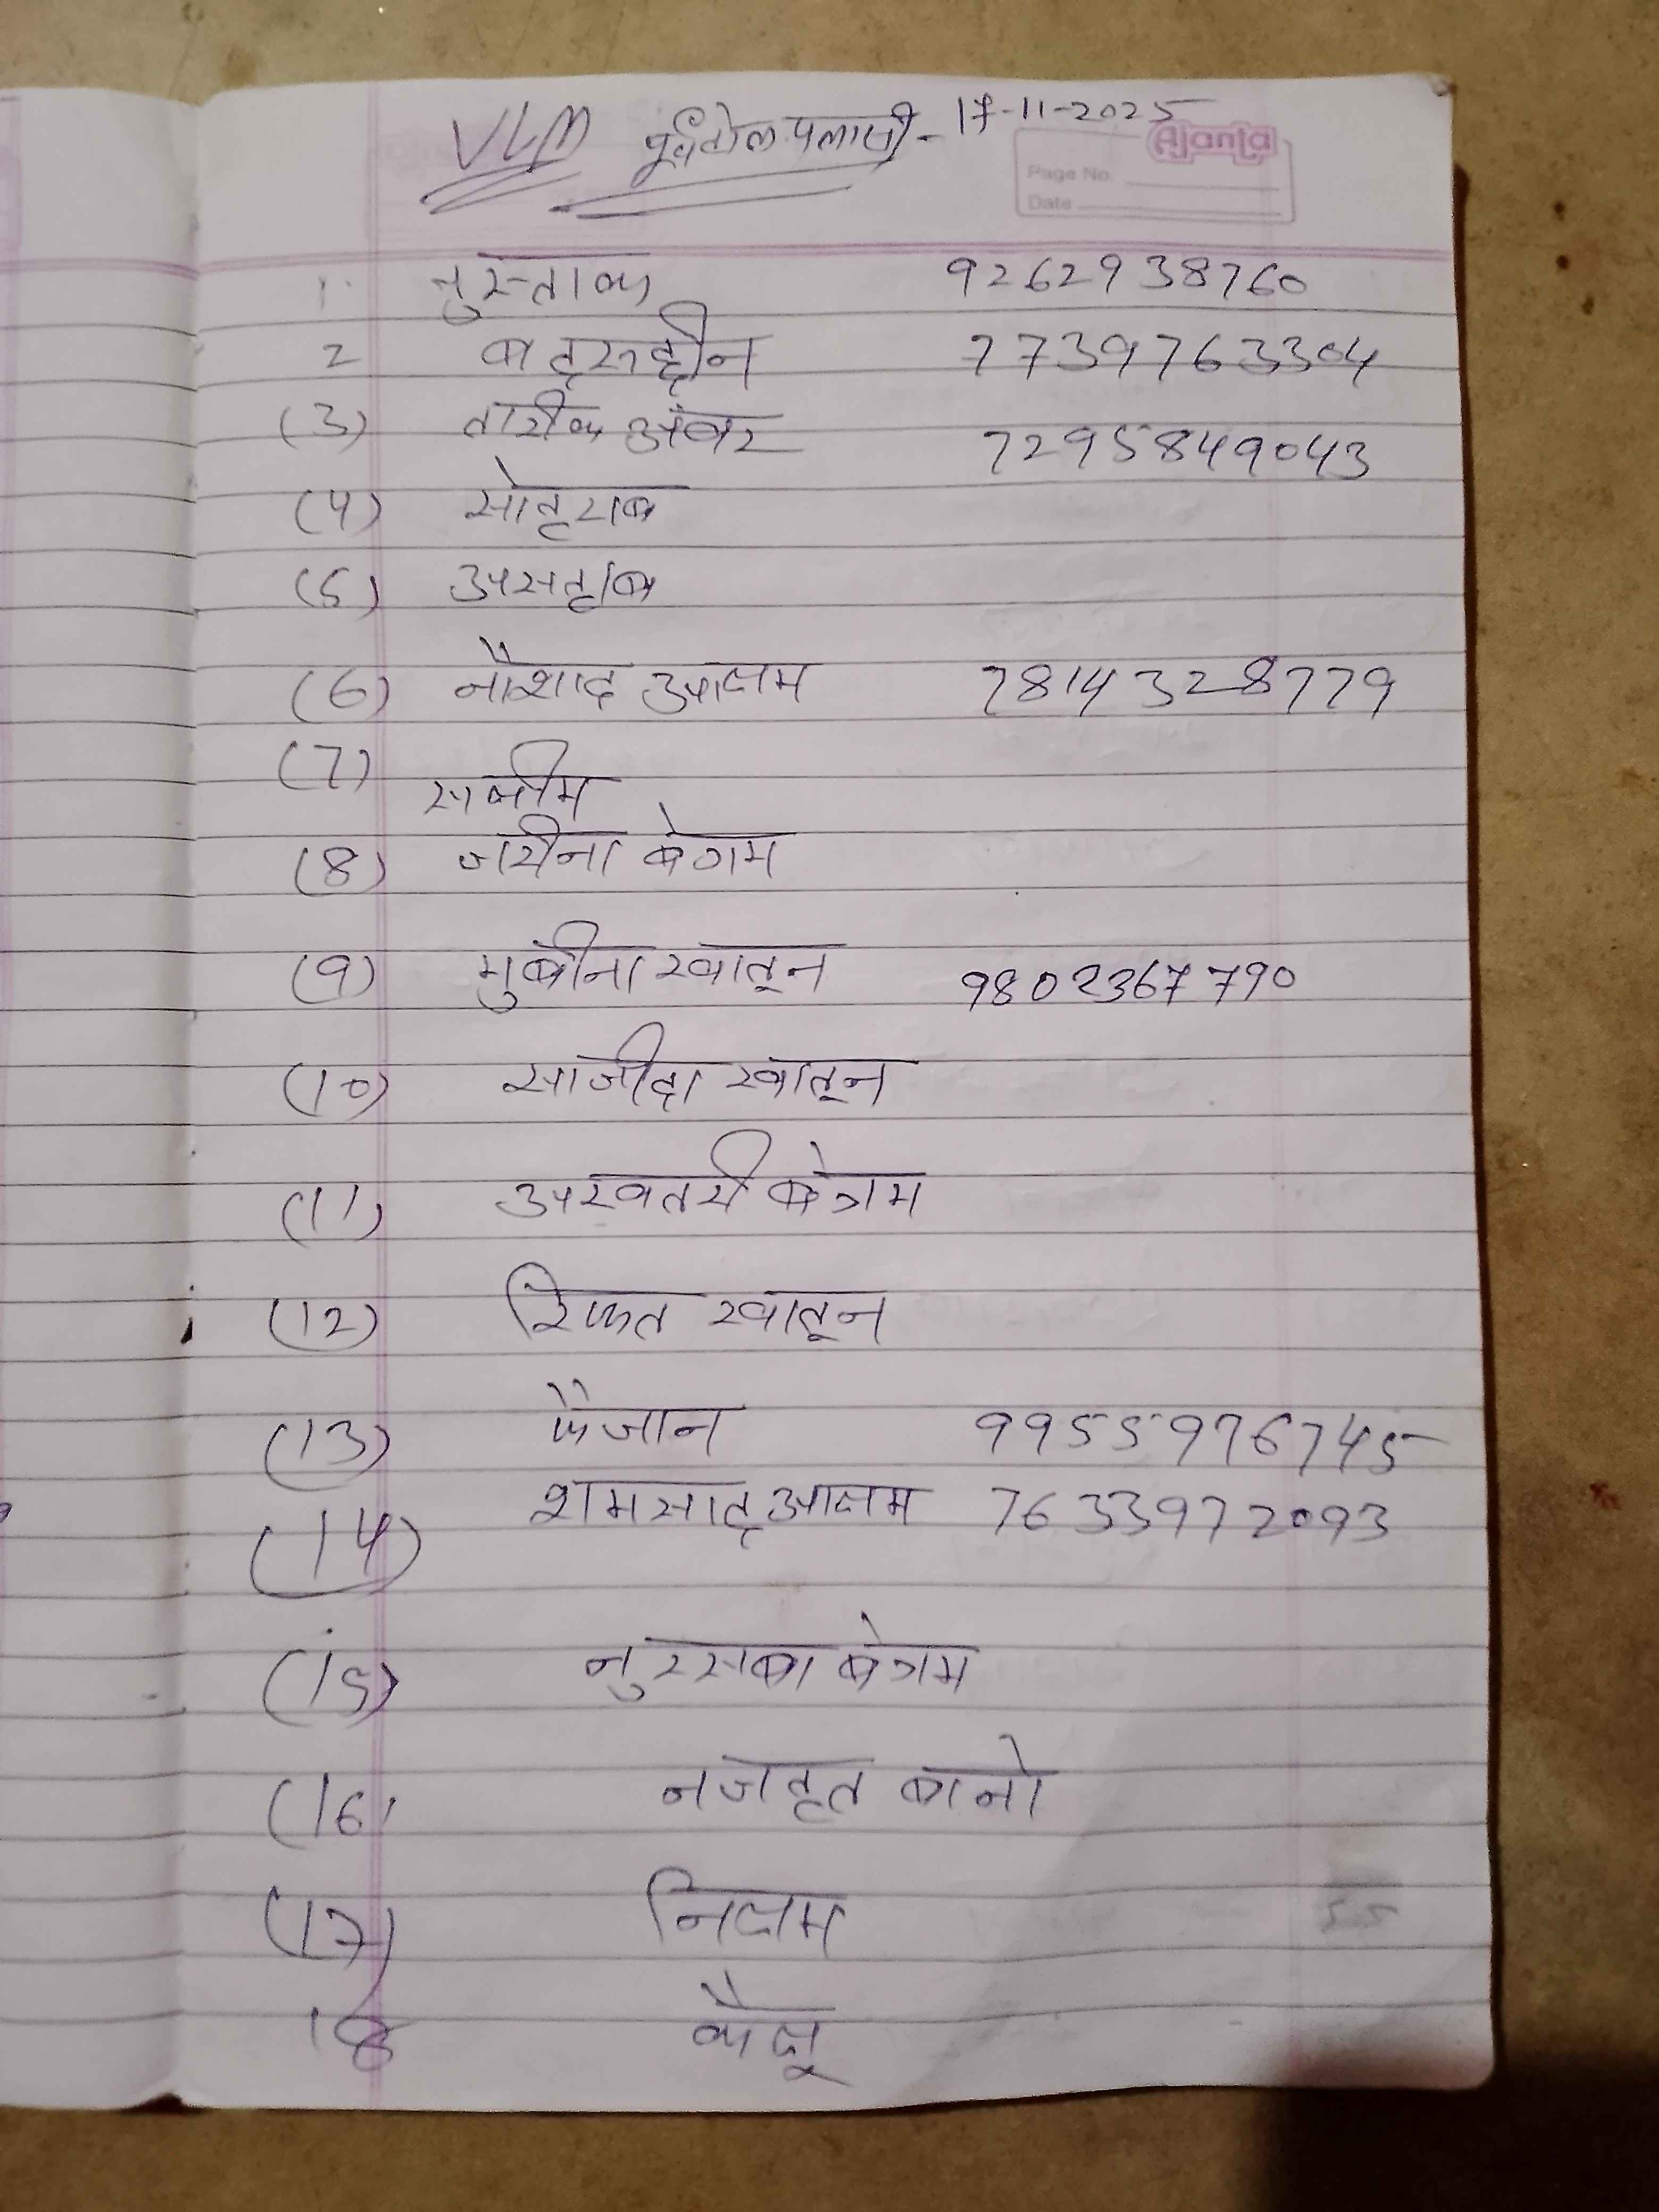 VLM पूर्वटोला पलासी - 17-11-2025
Ajanta
Page No.
Date
1. मुस्ताक 9262938760
2 बद्रुद्दीन 7739763304
(3) तारीक अंबर 7295849043
(4) सोहराब
(5) असहाब
(6) नौशाद आलम 7814328779
(7)
सलीम
(8) जरीना बेगम
(9) मुबीना खातून 9802367790
(10) साजीदा खातून
(11) अखतरी बेगम
(12) रिफत खातून
(13) फैजान 9955976745
(14) शमसाद आलम 7633972093
(15) नुरसबा बेगम
(16) नजहत बानो
(17) निलम
18 कैलू